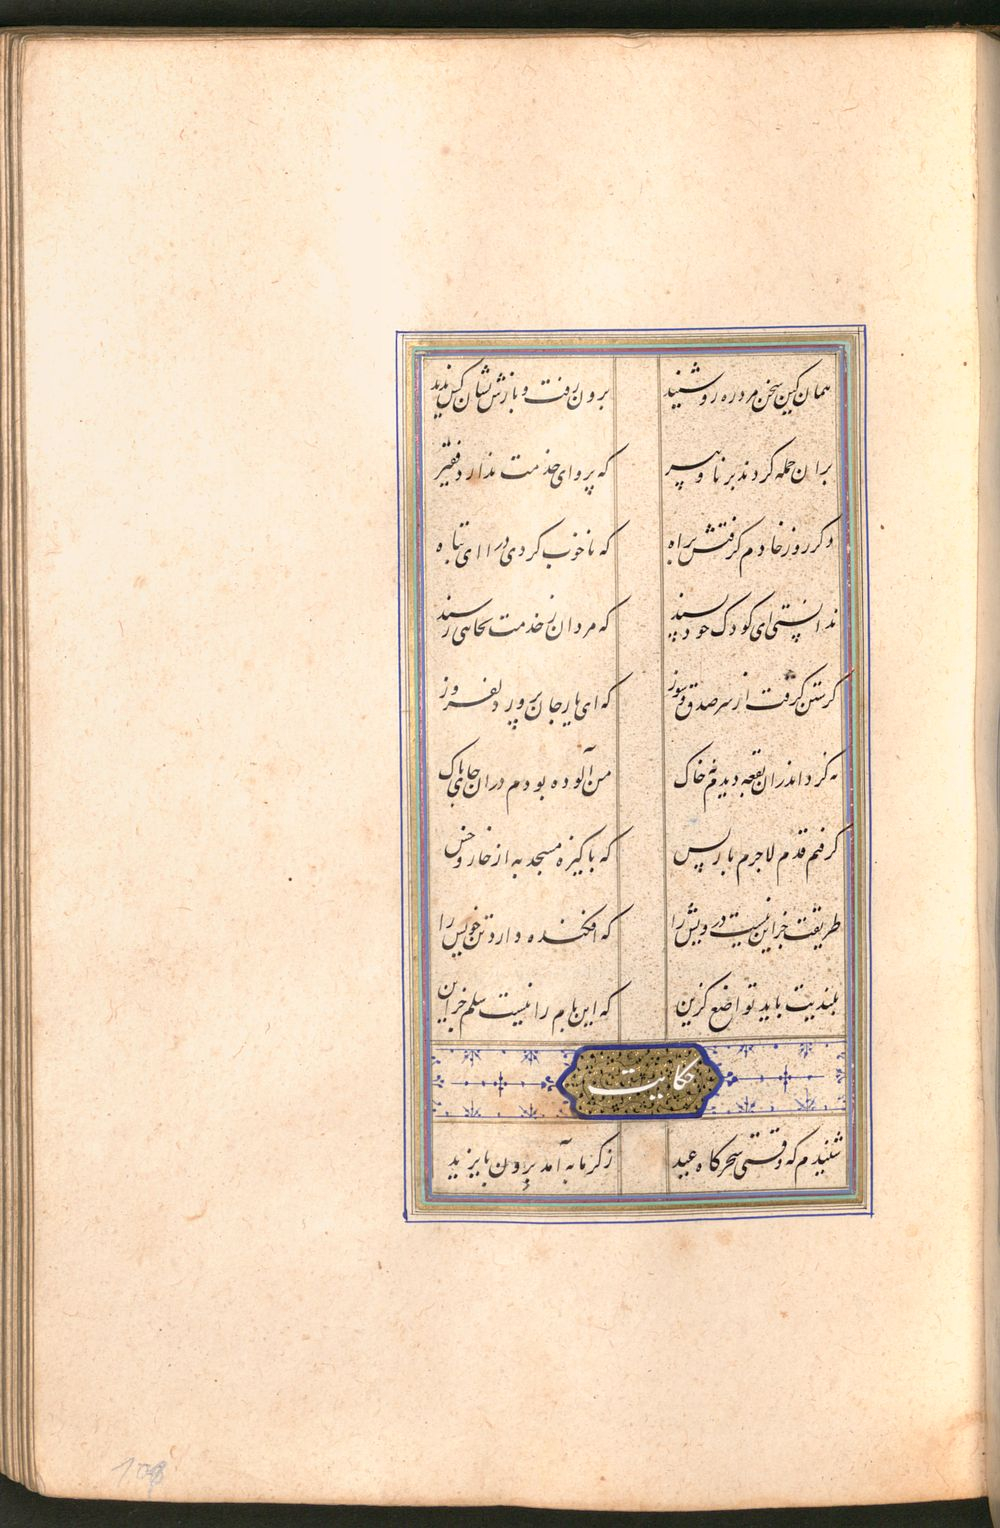 همان کین سخن مرد ره رو شنید برون رفت و بازش نشان کس ندید
بران حمله کردند برنا و پیر که پروای خدمت ندارد فقیر
دکر روز خادم کرفتش براه که ناخوب کردی درا ای تباه
ندانستی ای کودک خودپسند که مردان ز خدمت بجایی رسند
کرستن کرفت از سر صدق و سوز که ای یار جان پرور دلفروز
نه کرد اندران بقعه دیدم نه خاک من آلوده بودم دران جای پاک
کرفتم قدم لاجرم باز پس که پاکیزه مسجد به از خار و خس
طریقت جز این نیست درویش را که افکنده دارد تن خویش را
بلندیت باید تواضع کزین که این بام را نیست سلم جز این
حکایت
شنیدم که وقتی سحرکاه عید ز کرمابه آمد برون بایزید
108